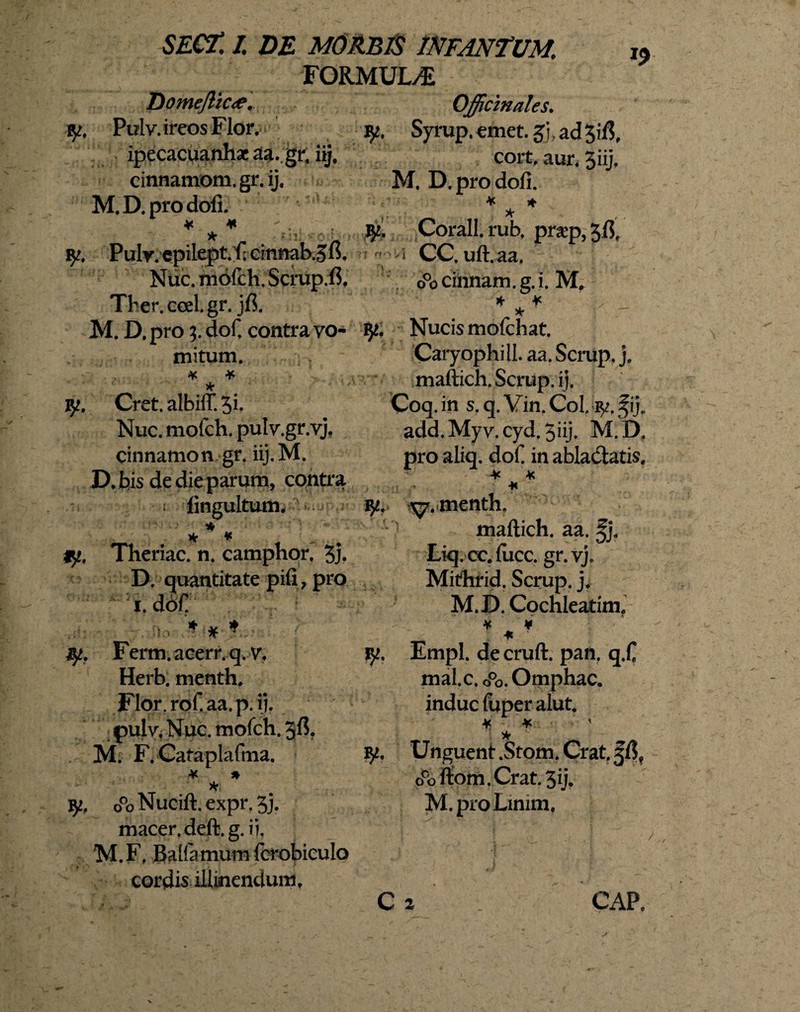 SECT. I. DE MORBIS INFANTUM. 19
FORMULÆ
Domesticæ.
℞. Pulv. ireos Flor.
ipecacuanhæ aa. gr. iij.
cinnamom. gr. ij.
M. D. pro dosi.
* * *
℞. Pulv. epilept. s. cinnab. ʒß.
Nuc. mosch. Scrup. ß.
Ther. cœl. gr. jß.
M. D. pro 3. dos. contra vo-
mitum.
* * *
℞. Cret. albiss. ʒi.
Nuc. mosch. pulv. gr. vj.
cinnamon gr. iij. M.
D. bis de die parum, contra
singultum.
* * *
℞. Theriac. n. camphor. ʒj.
D. quantitate pisi, pro
1. dos.
* * *
℞. Ferm. acerr. q. v.
Herb. menth.
Flor. ros. aa. p. ij.
pulv. Nuc. mosch. ʒß.
M. F. Cataplasma.
* * *
℞. o°o Nucist. expr. ʒj.
macer. dest. g. ii.
M. F. Balsamum scrobiculo
cordis illinendum.
Officinales.
℞. Syrup. emet. ʒj. ad ʒiß.
cort. aur. ʒiij.
M. D. pro dosi.
* * *
℞. Corall. rub. præp. ʒß.
CC. ust. aa.
o°o cinnam. g. i. M.
* * *
℞. Nucis moschat.
Caryophill. aa. Scrup. j.
mastich. Scrup. ij.
Coq. in s. q. Vin. Col. ℞. ℥ij.
add. Myv. cyd. ʒiij. M. D.
pro aliq. dos. in ablactatis.
* * *
℞. menth.
mastich. aa. ℥j.
Liq. cc. succ. gr. vj.
Mithrid. Scrup. j.
M. D. Cochleatim.
* * *
℞. Empl. de crust. pan. q. s.
mal. c. o°o. Omphac.
induc super alut.
* * *
℞. Unguent. Stom. Crat. ℥ß.
o°o stom. Crat. ʒij.
M. pro Linim.
C 2 CAP.